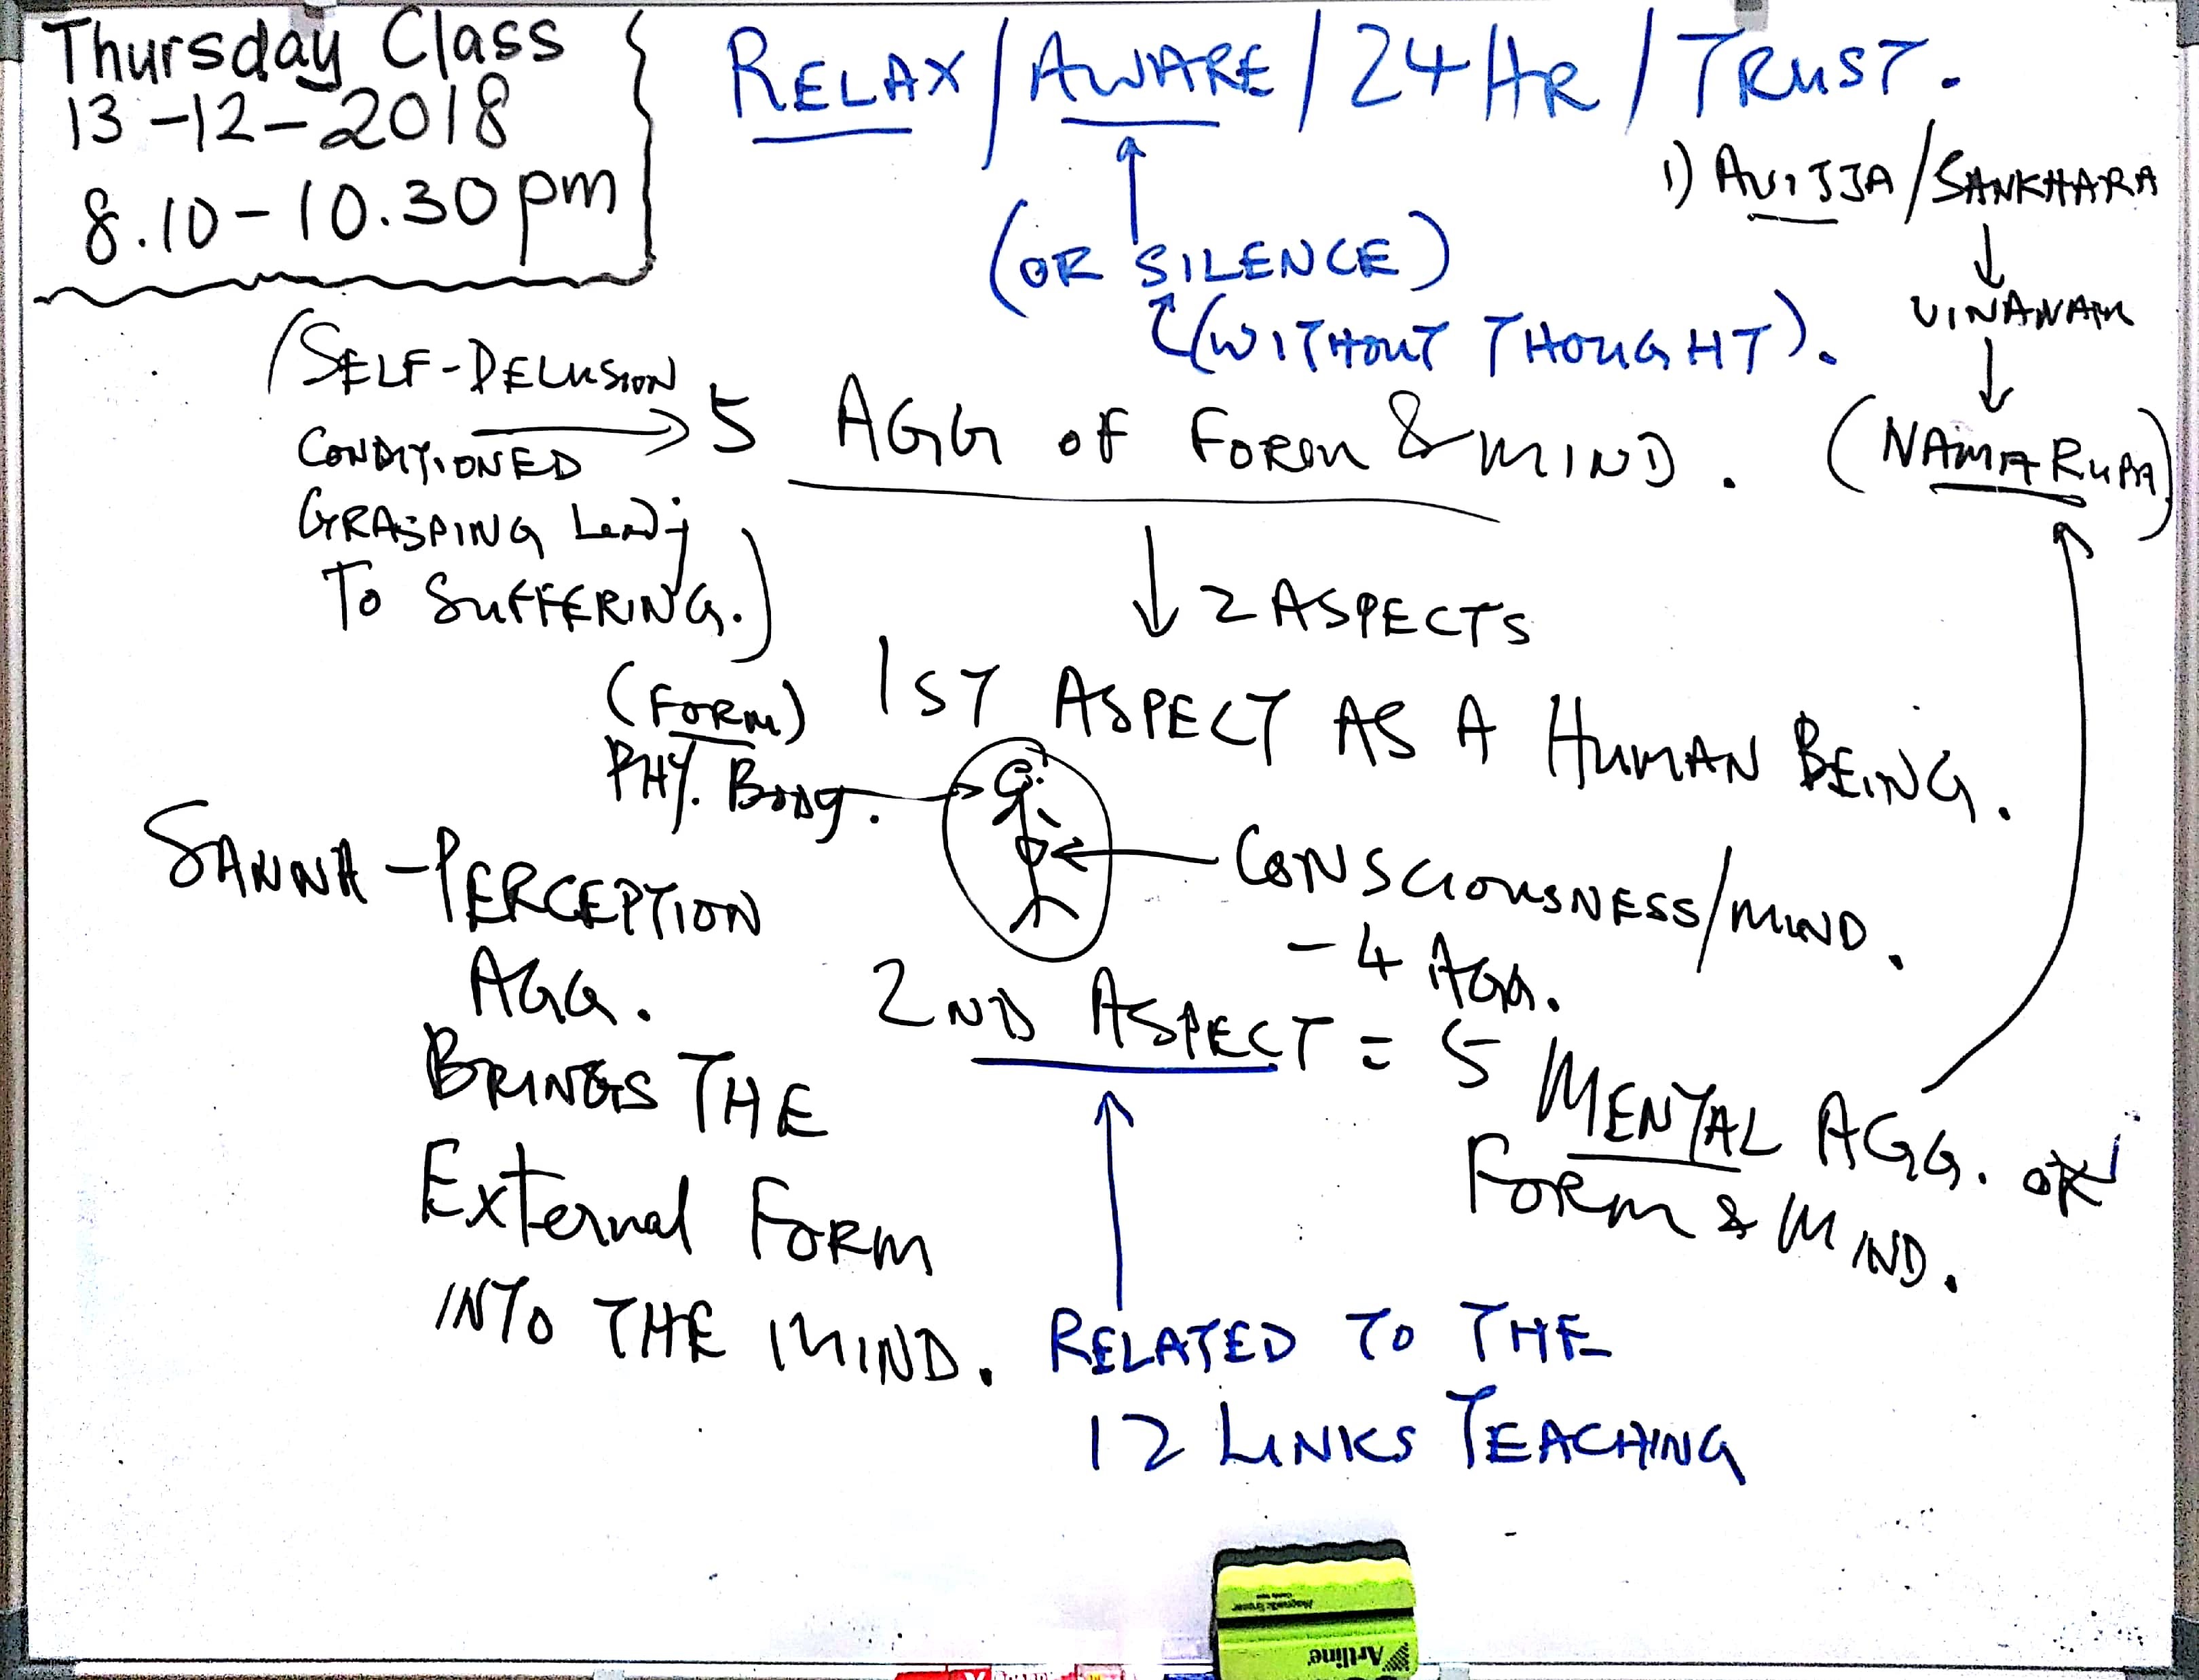 Thursday Class
13-12-2018
8.10-10.30pm
RELAX/AWARE/24HR/TRUST.
(OR SILENCE)
(WITHOUT THOUGHT).
1) AVIJJA/SANKHARA
VINANAM
(NAMARUPA)
(SELF-DELUSION
CONDITIONED
GRASPING
TO SUFFERING.)
5 AGG OF FORM & MIND.
2 ASPECTS
1ST ASPECT AS A HUMAN BEING.
(FORM)
PHY. BODY.
CONSCIOUSNESS/MIND.
- 4 AGG.
SANNA-PERCEPTION
AGG.
BRINGS THE
External FORM
INTO THE MIND.
2ND ASPECT = 5 MENTAL AGG. OR
FORM & MIND.
RELATED TO THE
12 LINKS TEACHING
Artline